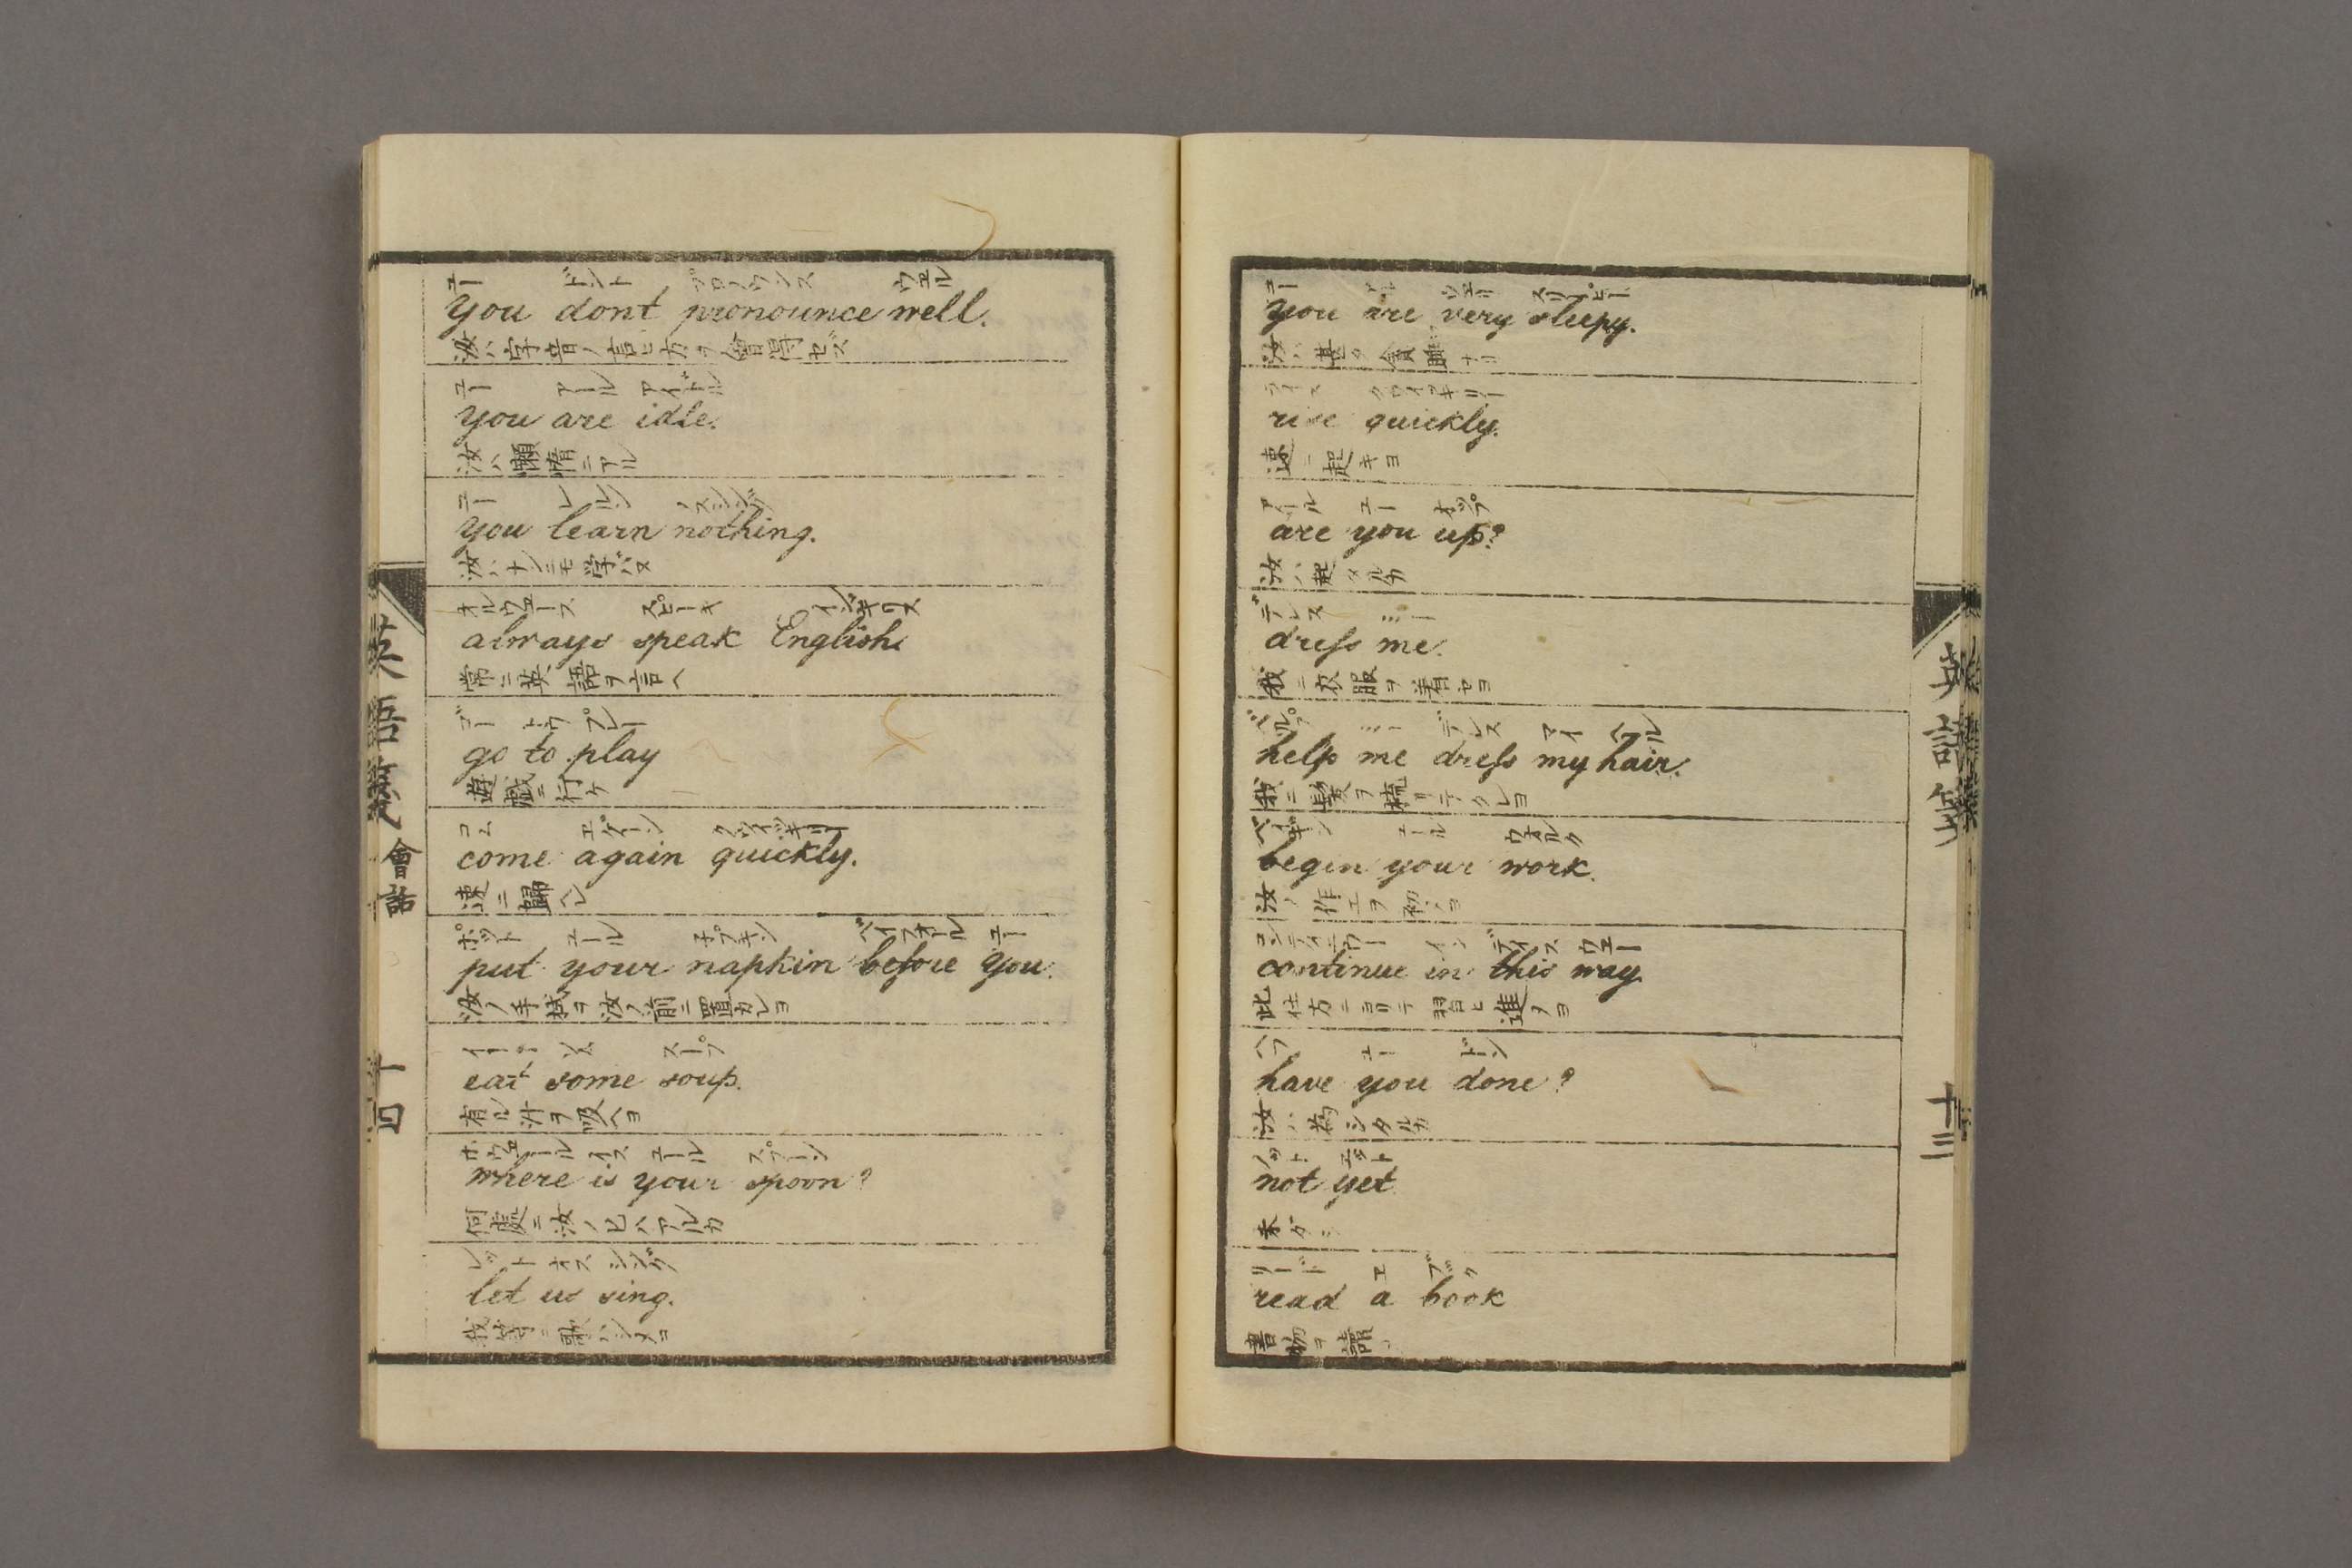 ユー アル ウェリ スリーピー
you are very sleepy.
汝ハ甚タ貪眠ナリ
ライス クワイッキリー
rise quickly.
速ニ起キヨ
アール ユー オップ
are you up?
汝ハ起タルカ
デレス ミー
dreſs me.
我ニ衣服ヲ着セヨ
ヘルプ ミー デレス マイ ヘル
help me dreſs my hair.
我ニ髪ヲ梳リテクレヨ
ベギン ユール ウォルク
begin your work.
汝ノ作工ヲ初メヨ
コンティニウー イン ディス ウェー
continue in this way
此仕方ニヨリテ習ヒ進メヨ
ハブ ユー ドン
have you done?
汝ハ為シタルカ
ノット エット
not yet
未ダシ
リード エ ブック
read a book
書物ヲ讀
十三
ユー ドント プロノウンス ウェル
you dont pronounce well.
汝ハ字音ノ言ヒ方ヲ會得セズ
ユー アール アイドル
you are idle.
汝ハ懶惰ニアル
ユー レルン ノスシング
you learn nothing.
汝ハナンニモ学バヌ
オルウェース スピーキ イングキリス
always speak English
常ニ英語ヲ言ヘ
ゴー トウ プレー
go to play
遊戯ニ行ケ
コム エゲーン クワイッキリー
come again quickly.
速ニ歸ヘレ
ポット ユール ナプキン ベイフォール ユー
put your napkin before you.
汝ノ手拭ヲ汝ノ前ニ置カレヨ
イート ソム スープ
eat some soup.
有ル汁ヲ吸ヘヨ
ホウェール イス ユール スプーン
where is your spoon?
何處ニ汝ノ匕ハアルカ
レット オス シング
let us sing.
我等ニ歌ハシメヨ
會話
十四